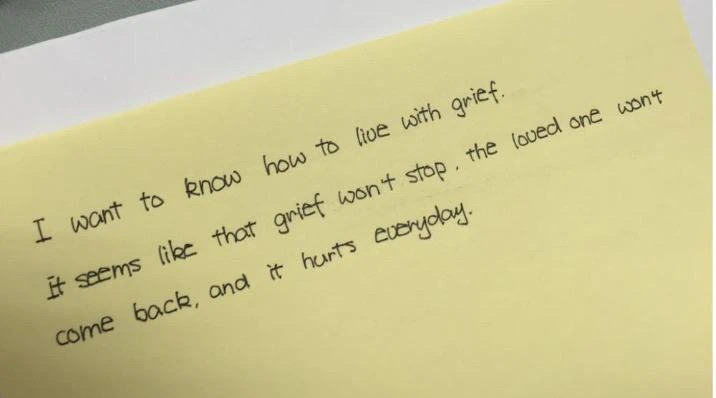 I want to know how to live with grief.
it seems like that grief won't stop, the loved one won't
come back, and it hurts everyday.